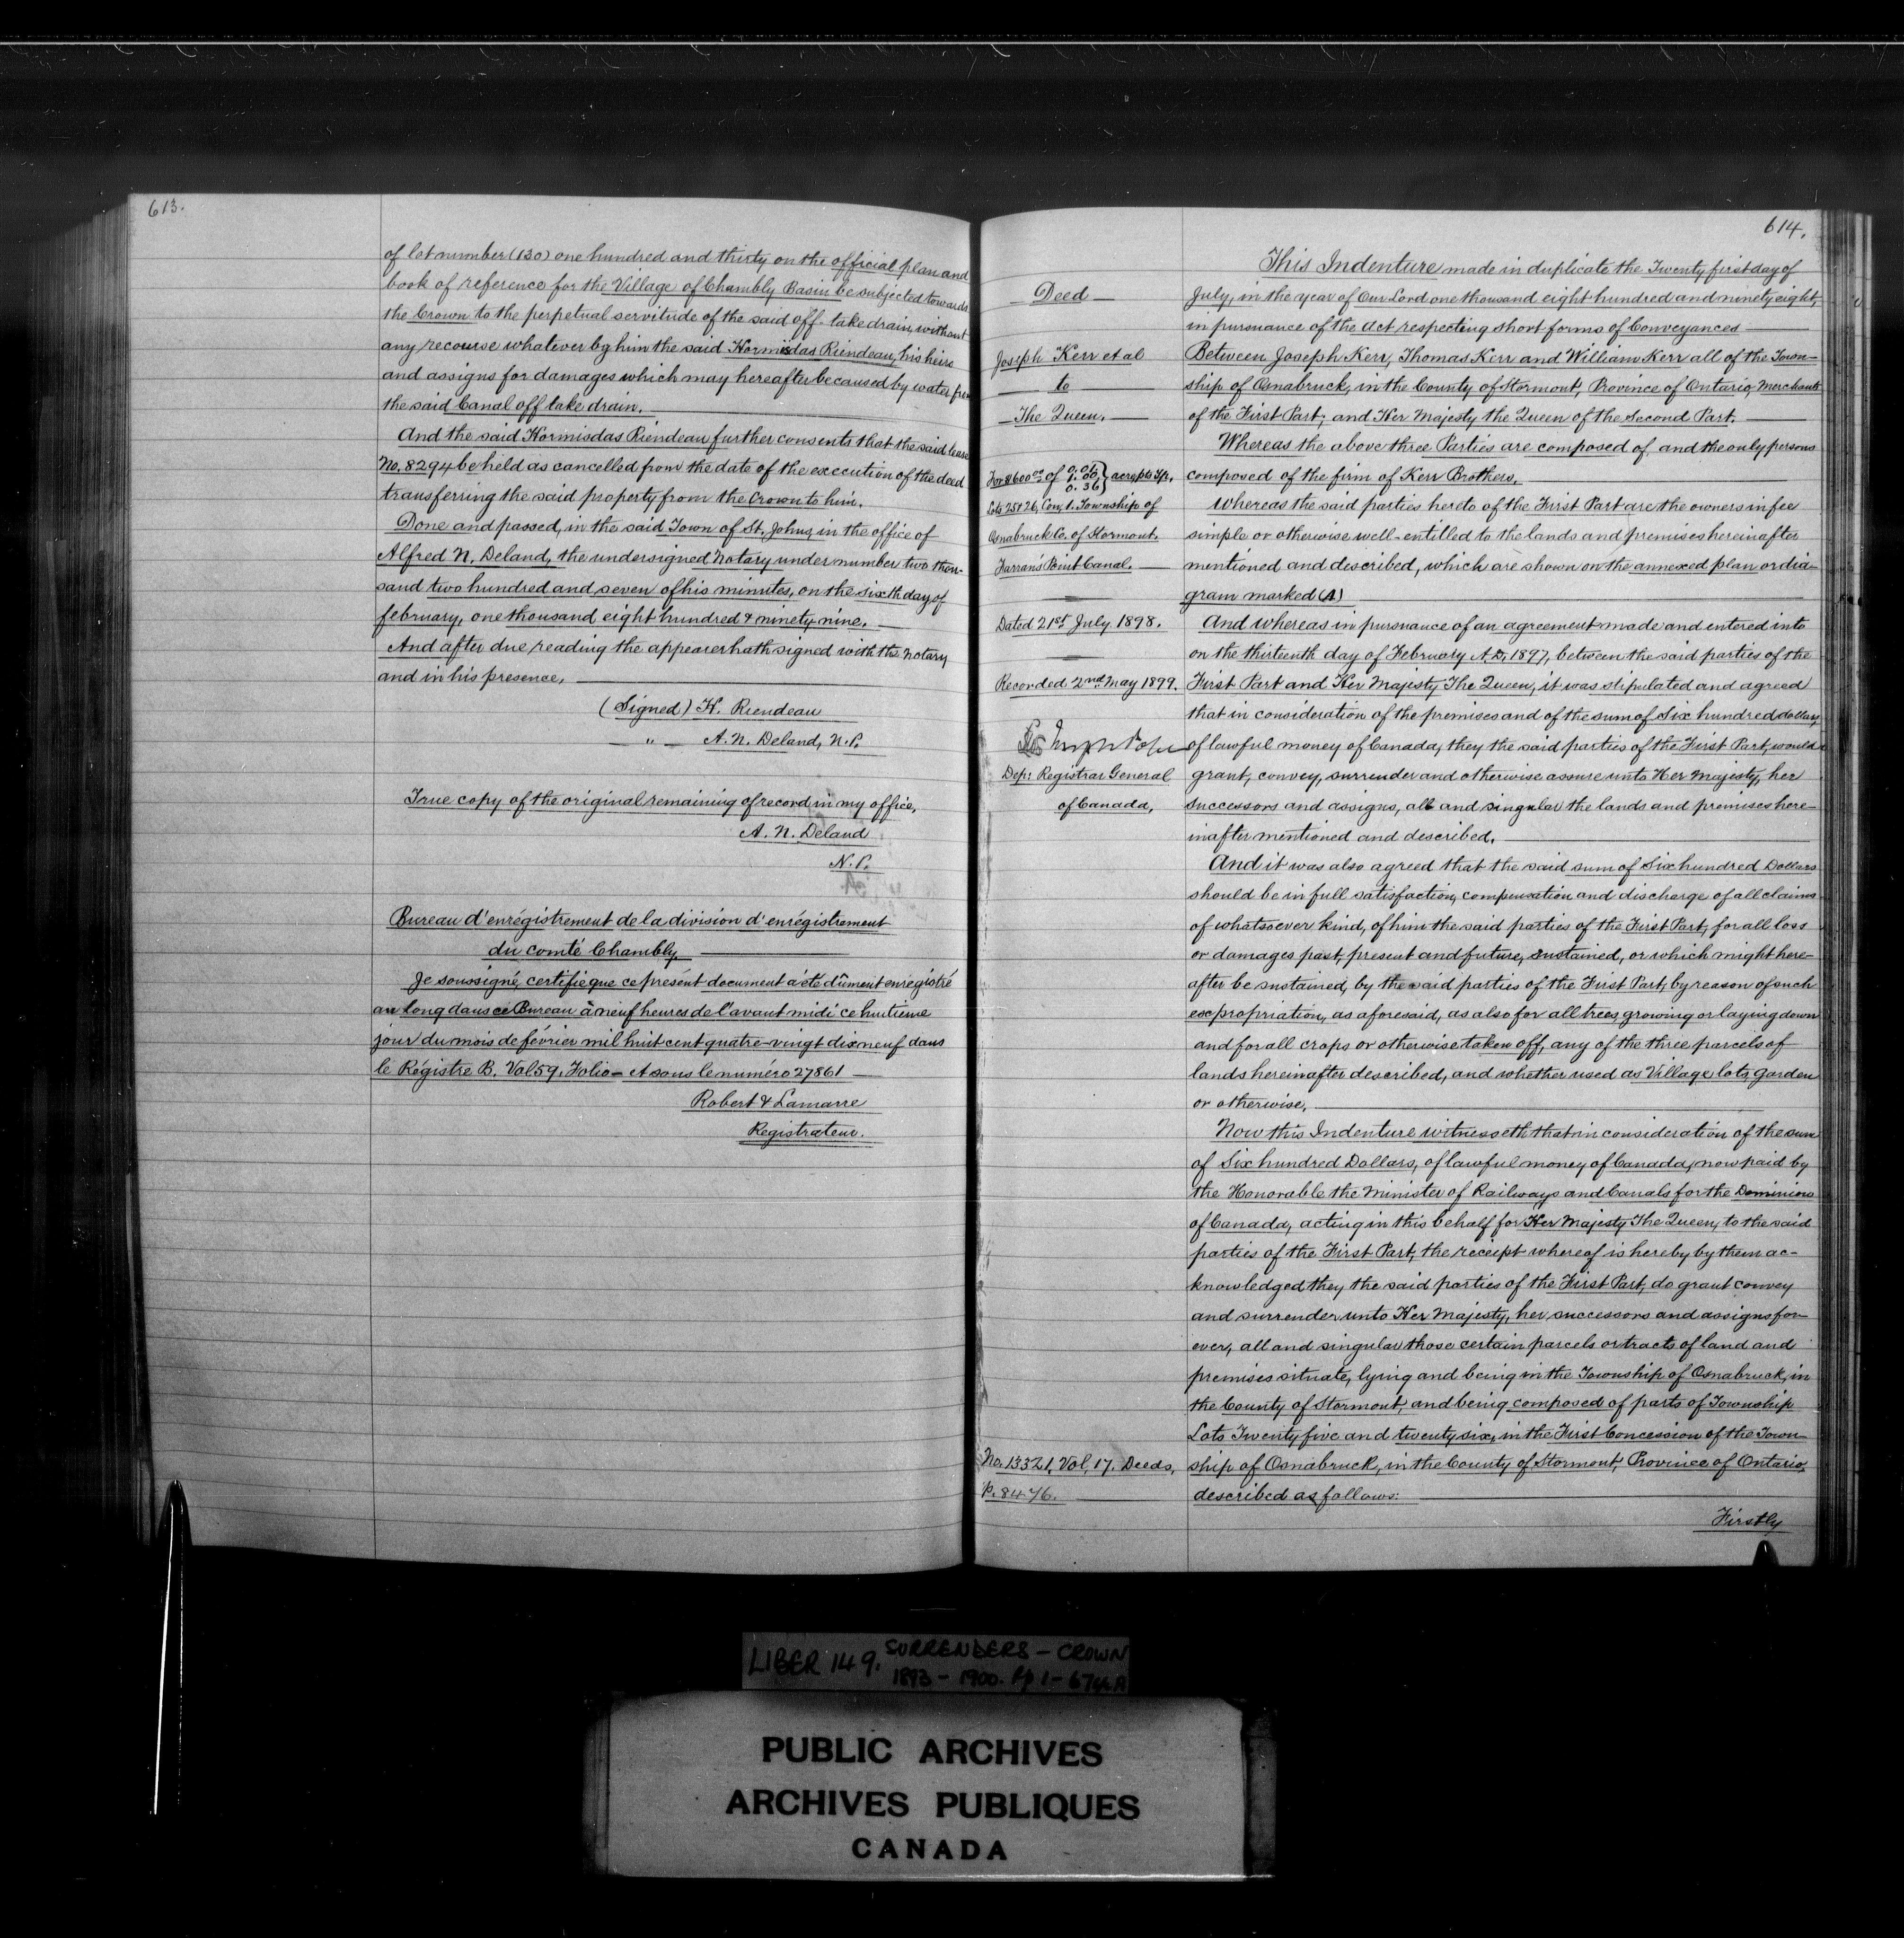 613.
of lot number (130) one hundred and thirty on the official plan and
book of reference for the Village of Chambly Basin be subjected towards
the Crown to the perpetual servitude of the said off-take drain, without
any recourse whatever by him the said Hormisdas Riendeau, his heirs
and assigns for damages which may hereafter be caused by water from
the said Canal off take drain.
And the said Hormisdas Riendeau further consents that the said lease
No. 8294 be held as cancelled from the date of the execution of the deed
transferring the said property from the Crown to him.
Done and passed, in the said Town of St. Johns, in the office of
Alfred N. Deland, the undersigned Notary under number two thou-
sand two hundred and seven of his minutes, on the sixth day of
february, one thousand eight hundred & ninety-nine.
And after due reading the appearer hath signed with the Notary
and in his presence,
(Signed) H. Riendeau
" A. N. Deland, N.P.
True copy of the original remaining of record in my office,
A. N. Deland
N.P.
Bureau d'enrégistrement de la division d'enrégistrement
du comté Chambly
Je soussigné, certifie que ce présent document a été dûment enrégistré
au long dans ce Bureau à neuf heures de l'avant midi ce huitieme
jour du mois de février mil huit cent quatre-vingt dix neuf dans
le Régistre B. Vol 59. Folio - A sous le numéro 27861
Robert & Lamarre
Registrateur.
614.
Deed
Joseph Kerr et al
to
The Queen.
For $600 00 of 0.06 1.00 0.36 } acres pts Tp.
Lots 25 & 26, Con. 1. Township of
Osnabruck Co. of Stormont.
Farran's Point Canal.
Dated 21st July 1898.
Recorded 2nd May 1899.
Joseph Pope
Dep: Registrar General
of Canada,
No. 13321, Vol. 17. Deeds,
p. 8476.
This Indenture made in duplicate the Twenty first day of
July, in the year of Our Lord one thousand eight hundred and ninety eight,
in pursuance of the Act respecting short forms of Conveyances
Between Joseph Kerr, Thomas Kerr and William Kerr all of the Town-
ship of Osnabruck, in the County of Stormont, Province of Ontario, Merchants
of the First Part; and Her Majesty the Queen of the Second Part.
Whereas the above three Parties are composed of and the only persons
composed of the firm of Kerr Brothers.
Whereas the said parties hereto of the First Part are the owners in fee
simple or otherwise well-entitled to the lands and premises hereinafter
mentioned and described, which are shown on the annexed plan or dia-
gram marked (A)
And whereas in pursuance of an agreement made and entered into
on the thirteenth day of February A.D. 1897, between the said parties of the
First Part and Her Majesty The Queen, it was stipulated and agreed
that in consideration of the premises and of the sum of Six hundred dollars
of lawful money of Canada, they the said parties of the First Part, would
grant, convey, surrender and otherwise assure unto Her Majesty, her
successors and assigns, all and singular the lands and premises here-
inafter mentioned and described.
And it was also agreed that the said sum of Six hundred Dollars
should be in full satisfaction, compensation and discharge of all claims
of whatsoever kind, of him the said parties of the First Part, for all loss
or damages past, present and future, sustained, or which might here-
after be sustained, by the said parties of the First Part, by reason of such
expropriation, as aforesaid, as also for all trees, growing or laying down
and for all crops or otherwise taken off, any of the three parcels of
lands hereinafter described, and whether used as Village lots, Garden
or otherwise.
Now this Indenture witnesseth that in consideration of the sum
of Six hundred Dollars, of lawful money of Canada, now paid by
the Honorable the Minister of Railways and Canals for the Dominion
of Canada, acting in this behalf for Her Majesty The Queen, to the said
parties of the First Part, the receipt whereof is hereby by them ac-
knowledged they the said parties of the First Part, do grant convey
and surrender unto Her Majesty, her successors and assigns for-
ever, all and singular those certain parcels or tracts of land and
premises situate, lying and being in the Township of Osnabruck, in
the County of Stormont, and being composed of parts of Township
Lots Twenty five and twenty six, in the First Concession of the Town-
ship of Osnabruck, in the County of Stormont, Province of Ontario,
described as follows:
Firstly
LIBER 149. SURRENDERS - CROWN
1893 - 1900. Pp 1 -
PUBLIC ARCHIVES
ARCHIVES PUBLIQUES
CANADA